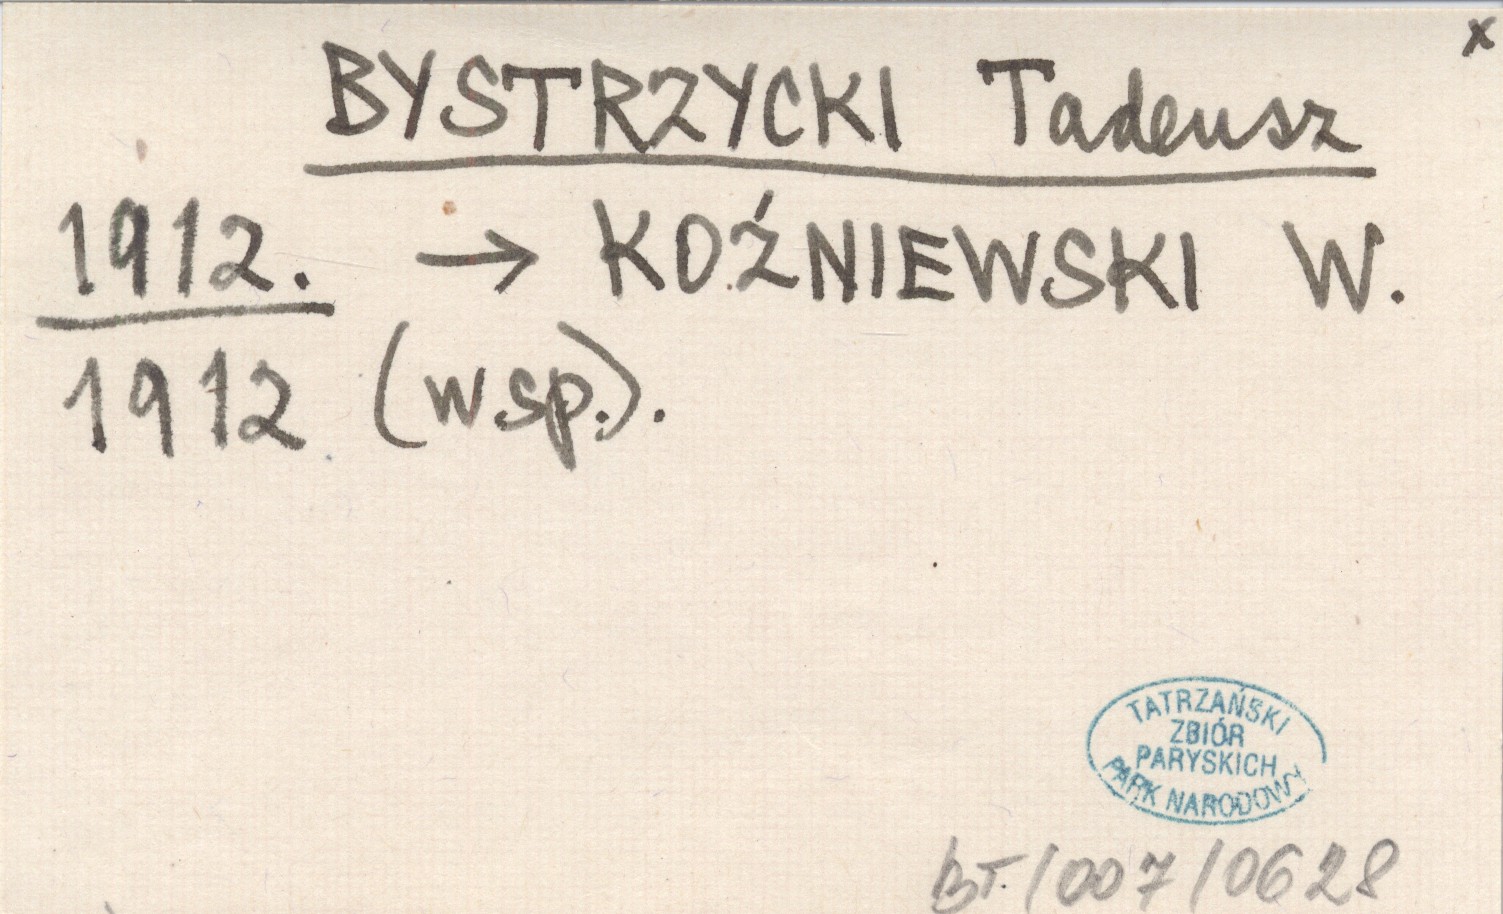 x
BYSTRZYCKI Tadeusz
1912. → KOŹNIEWSKI W.
1912 (wsp.).
TATRZAŃSKI
ZBIÓR
PARYSKICH
PARK NARODOWY
BT./007/0628